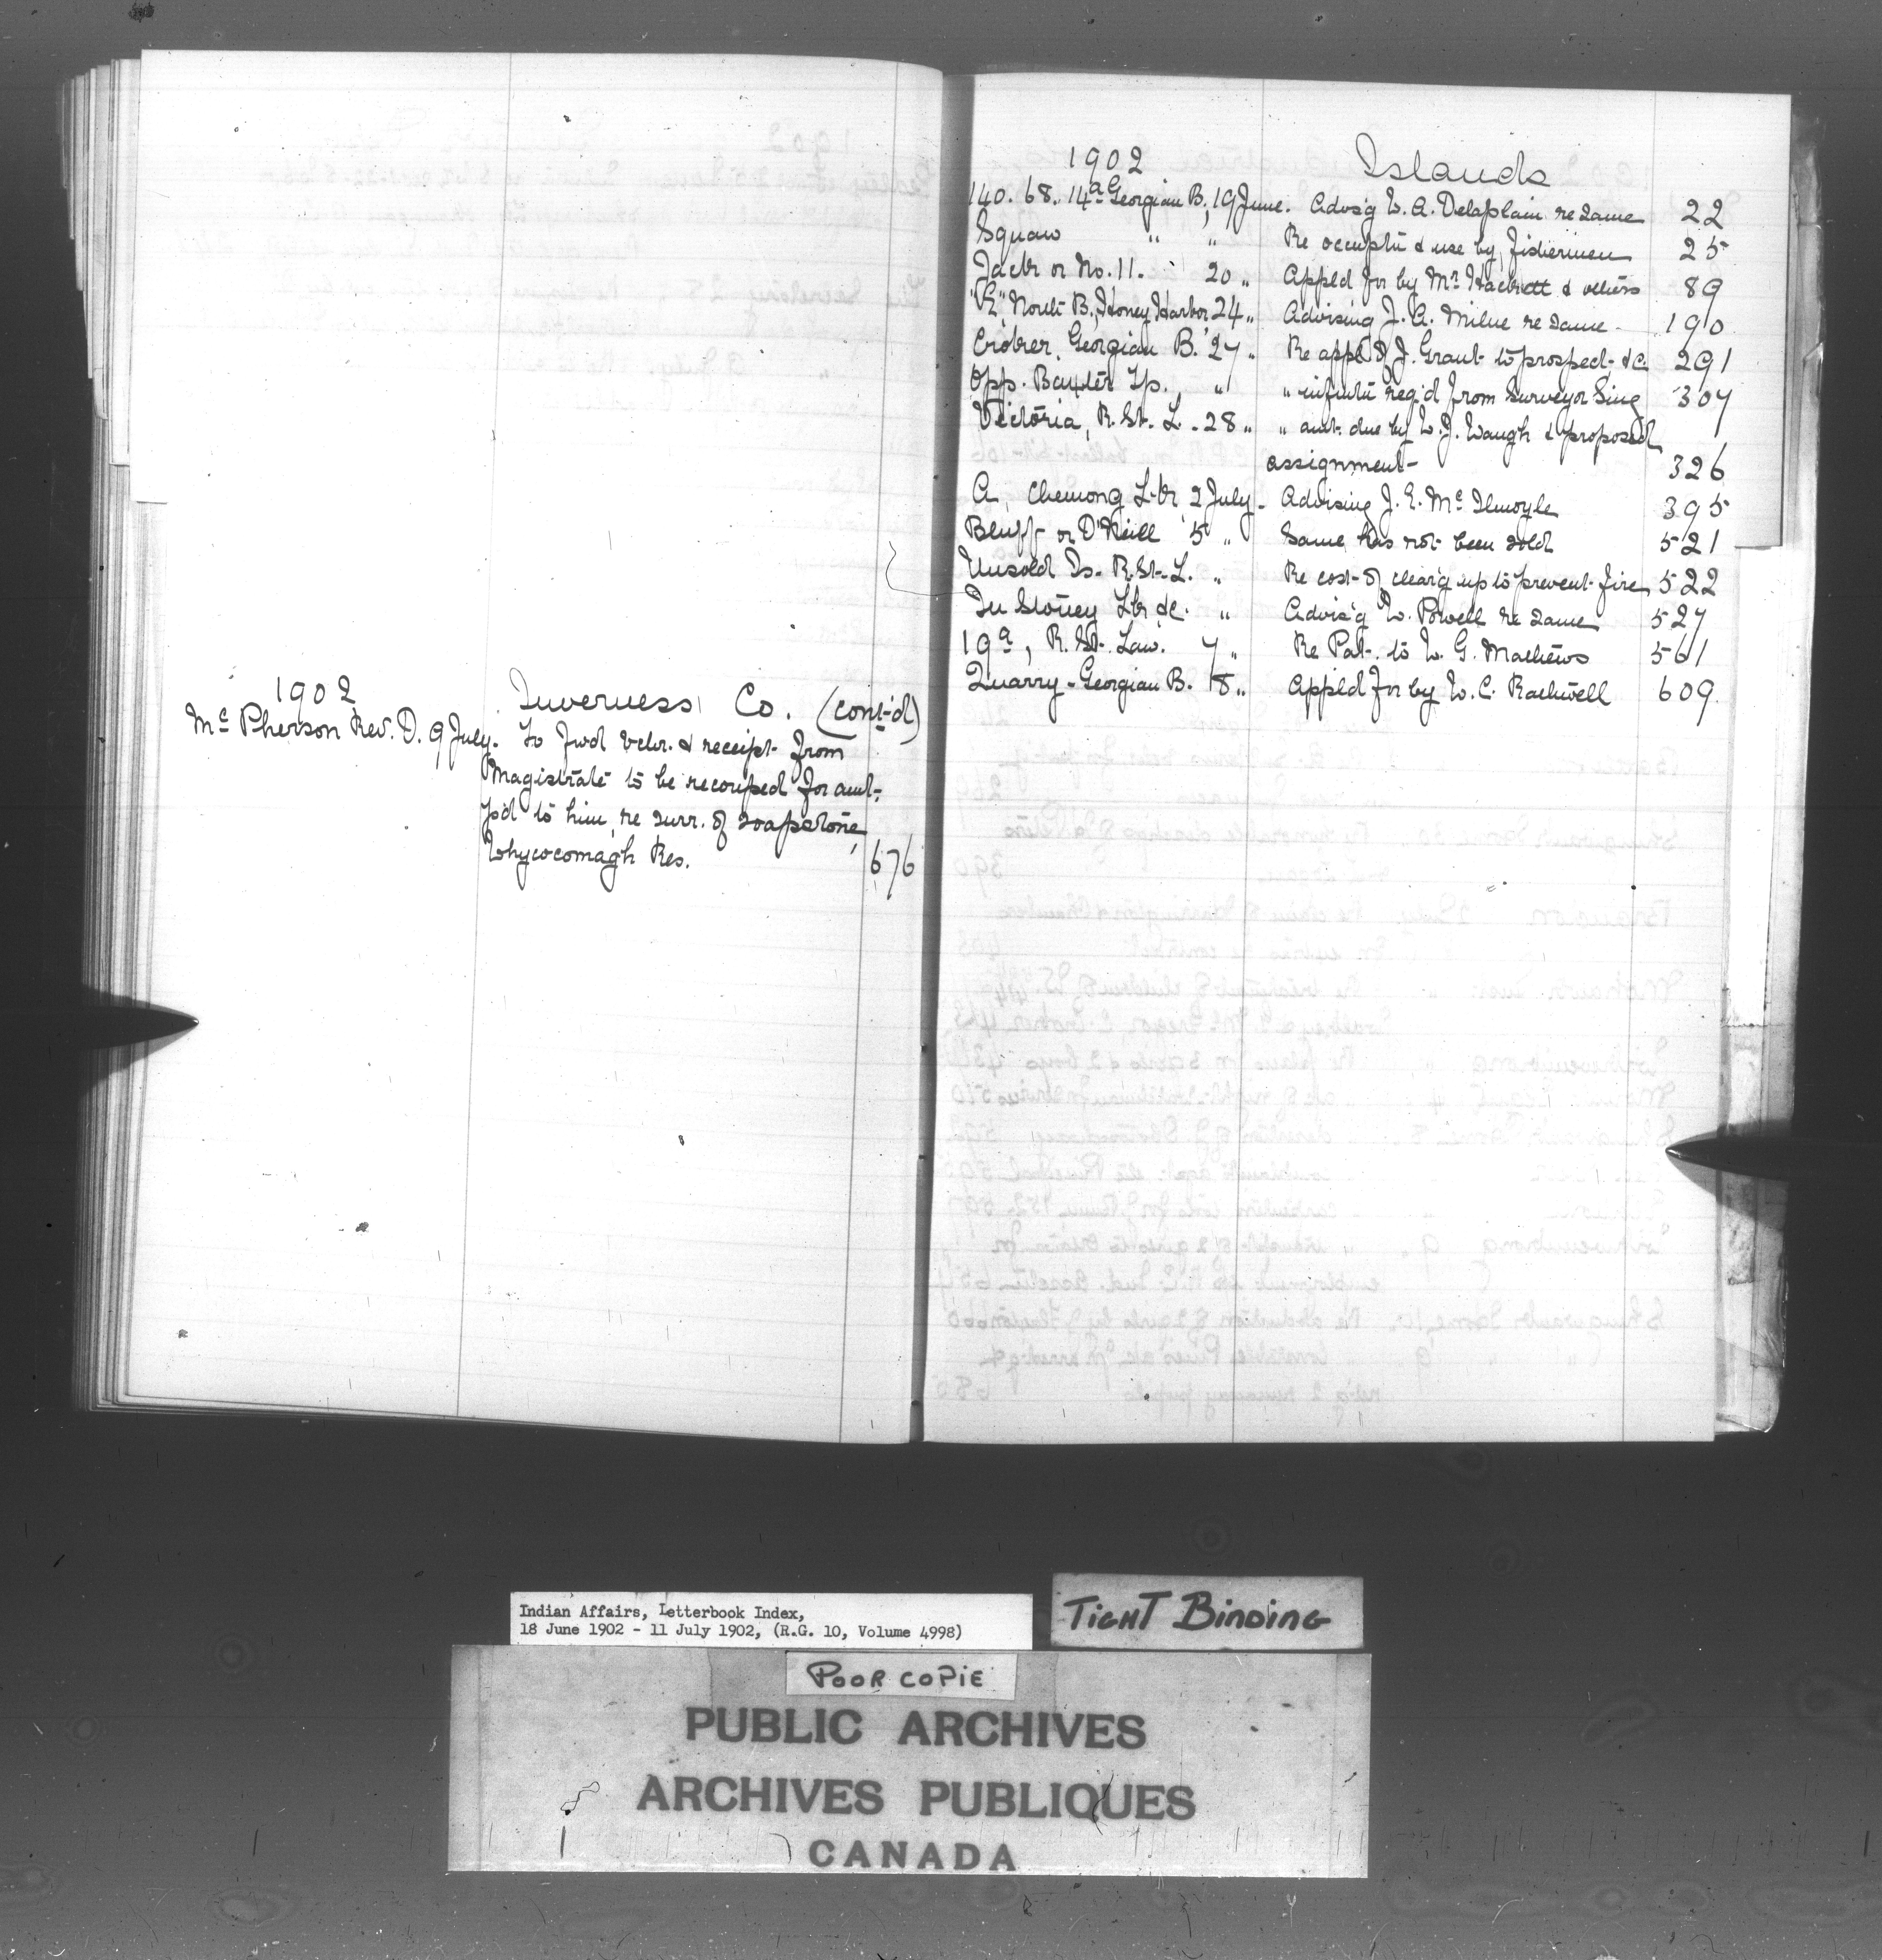 1902 Inverness Co. (cont-d)
Mc Pherson Rev. D. 9 July. To fwd vchr. & receipt from
Magistrate to be recouped for amt.
p'd to him, re surr. of soapstone,
Whycocomagh Res. 676
1902 Islands
140. 68. 14a Georgian B, 19 June. Advs'g W. A. Delaplain re same 22
Squaw " " Re occuptn & use by fishermen 25
Jack or No. 11. " 20 " Appl'd for by Mr Hackett & others 89
North B., Honey Harbor 24 " Advising J. A. Milne re same - 190
Georgian B. 27 " Re appl. of J. Grant to prospect &c. 291
Opp. Baxter Tp. " " infmtn req'd from Surveyor Sing 307
Victoria, R. St. L. - 28 " " amt. due by W. J. Waugh & proposed
assignment - 326
A, Chemong Lk, 2 July - Advising J. E. Mc Ilmoyle 395
Bluff or O'Neill 5 " Same has not been sold 521
Unsold Is. R. St. L. " Re cost of clear'g up to prevent fire 522
In Stoney Lk &c. " Advis'g W. Powell re same 527
19a, R. St. Law. 7 " Re Pat. to W. G. Mathews 561
Quarry - Georgian B. 8 " Appl'd for by W. C. Rackwell 609
Indian Affairs, Letterbook Index,
18 June 1902 - 11 July 1902, (R.G. 10, Volume 4998)
TIGHT BINDING
POOR COPIE
PUBLIC ARCHIVES
ARCHIVES PUBLIQUES
CANADA